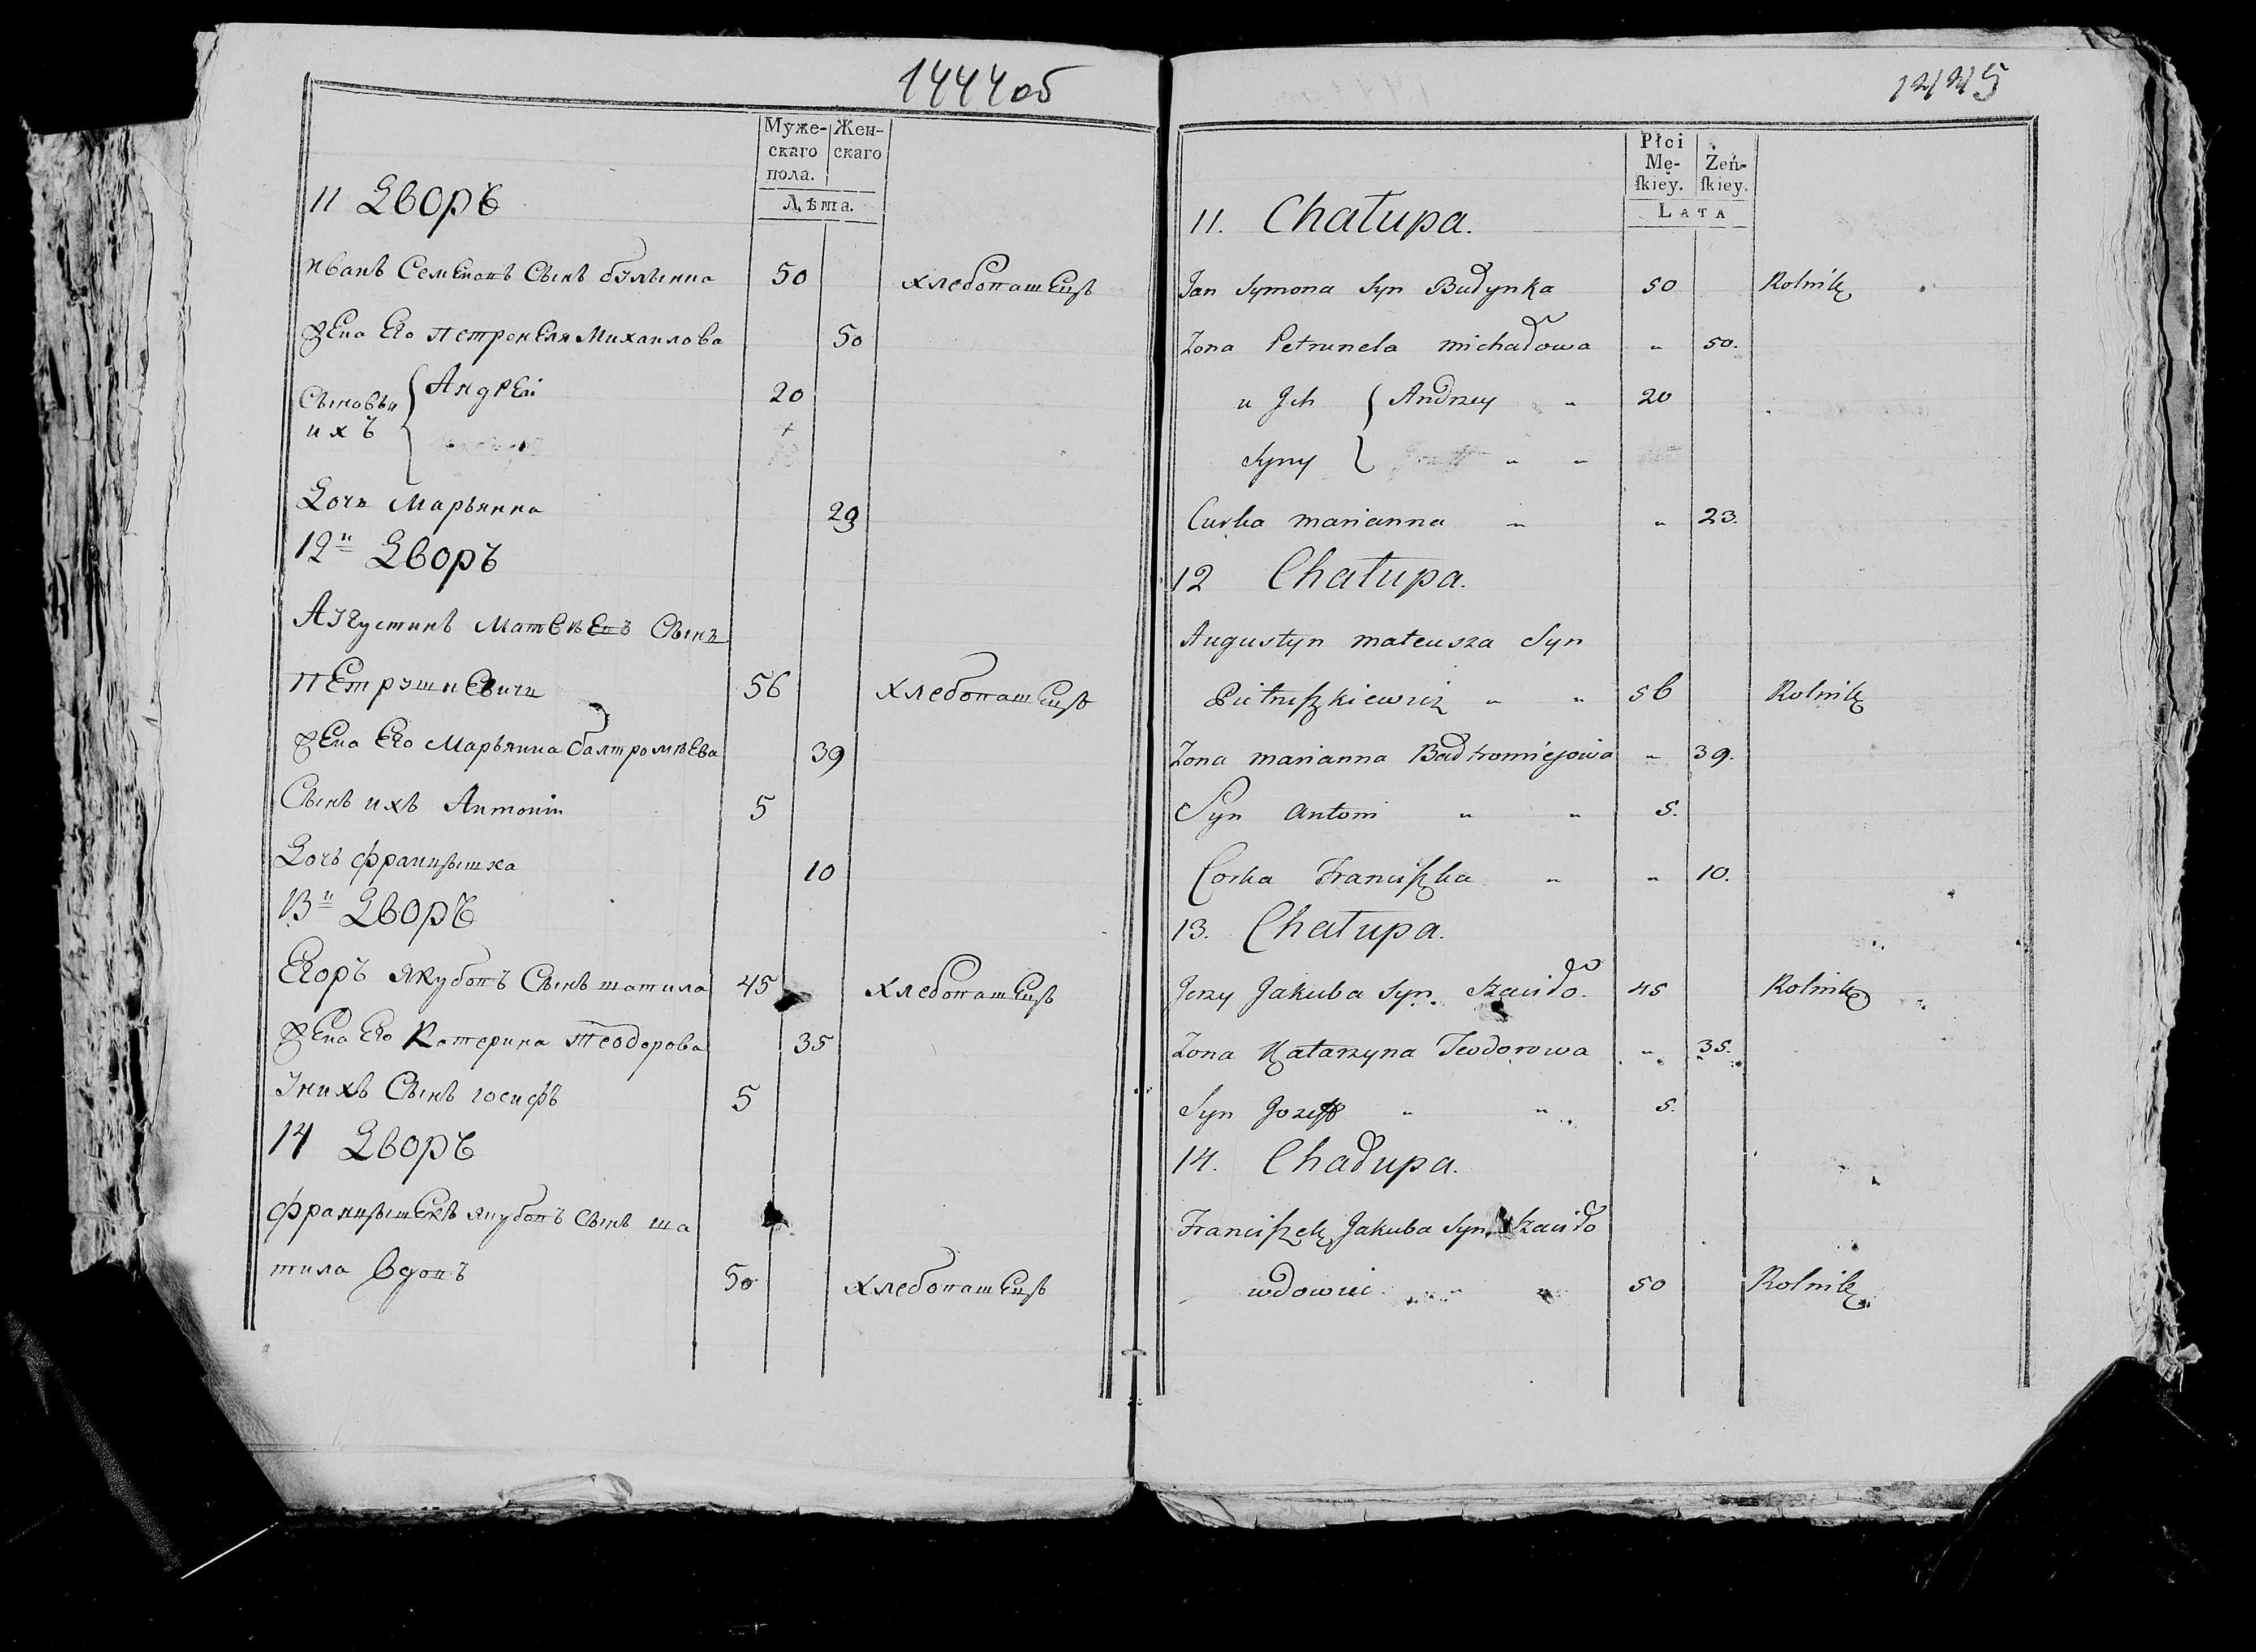 1444об
Муже-
скаго
пола.
Жен-
скаго
Лѣта.
11 Дворъ
Иванъ Семеновъ Сынъ булынка 50 хлебопашецъ
жена Его Петронеля Михаилова 50
Сыновьи
ихъ
Андреи 20
Дочь Марьянна 23
12й Дворъ
Августинъ Матвѣевъ Сынъ
Петрушкевичъ 56 хлебопашецъ
жена Его Марьянна балтромѣева 39
Сынъ ихъ Антонiи 5
Дочь францышка 10
13й Дворъ
Егоръ Якубовъ Сынъ шатила 45 хлебопашецъ
жена Его Катерина Теодорова 35
У нихъ Сынъ иосифъ 5
14 Дворъ
францышекъ якубовъ сынъ ша
тила вдовъ 50 хлебопашецъ
1445
Płci
Mę-
ſkiey.
Żeń-
ſkiey.
LATA
11. Chałupa.
Jan Symona Syn Budynka 50 Rolnik
Zona Petrunela michałowa " 50.
u Jch
Syny
Andrzey " 20
" "
Curka marianna " " 23.
12 Chałupa.
Augustyn mateusza Syn
Pietruszkiewicz " " 56 Rolnik
Zona marianna Bałtromiejowa " 39.
Syn Antoni " " 5.
Corka Franciszka " " 10.
13. Chałupa.
Jerzy Jakuba Syn. 45 Rolnik
Zona Katarzyna Teodorowa " 35.
Syn Jozeff " " 5.
14. Chałupa.
Franciszek Jakuba Syn
wdowiec " " 50 Rolnik